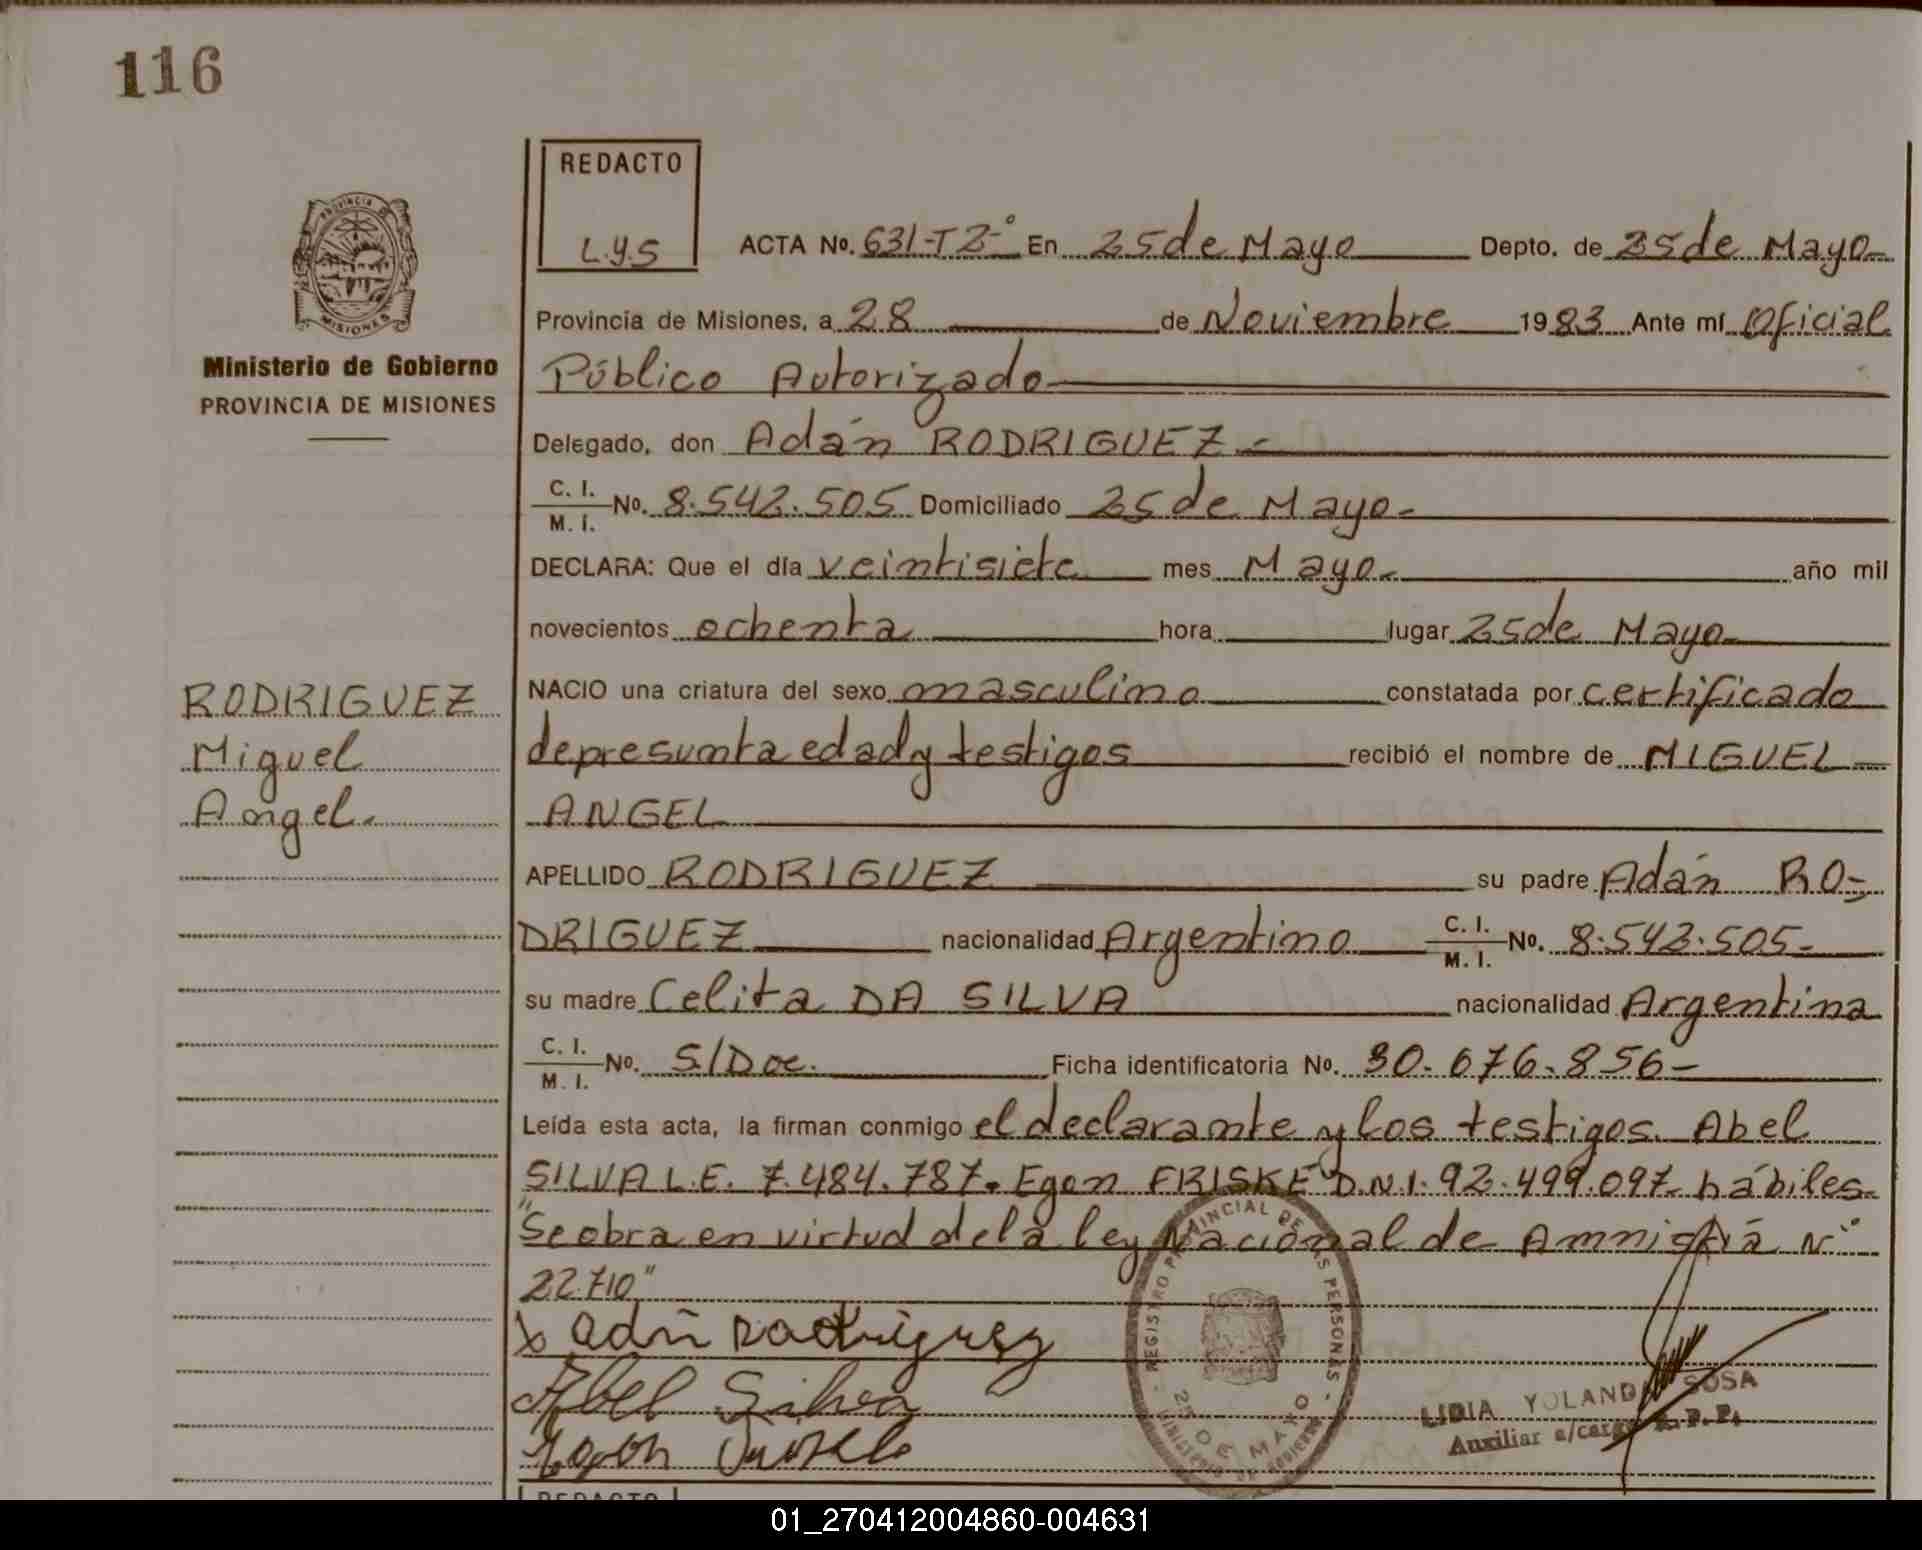 116
REDACTO
L.y.S
PROVINCIA DE
MISIONES
Ministerio de Gobierno
PROVINCIA DE MISIONES
ACTA No. 631-T2-° En 25 de Mayo Depto. de 25 de Mayo-
Provincia de Misiones, a 28 de Noviembre 1983 Ante mí Oficial
Público Autorizado
Delegado, don Adán RODRIGUEZ.-
C. I. / M. I. No. 8.542.505 Domiciliado 25 de Mayo.-
DECLARA: Que el día veintisiete mes Mayo.- año mil
novecientos ochenta hora lugar 25 de Mayo
NACIO una criatura del sexo masculino constatada por certificado
de presunta edad y testigos recibió el nombre de MIGUEL
ANGEL
APELLIDO RODRIGUEZ su padre Adán RO-
DRIGUEZ nacionalidad Argentino C. I. / M. I. No. 8.542.505-
su madre Celita DA SILVA nacionalidad Argentina
C. I. / M. I. No. S/Doc. Ficha identificatoria No. 30.676.856-
Leída esta acta, la firman conmigo el declarante y los testigos. Abel
SILVA L.E. 7.484.787. Egon FRISKE D.N.I. 92.499.097- hábiles-
"Se obra en virtud de la ley Nacional de Amnistía N°
22.710"
RODRIGUEZ
Miguel
Angel.
x adn Rodriguez
Abel Silva
REGISTRO PROVINCIAL DE LAS PERSONAS
25 DE MAYO
MINISTERIO DE GOBIERNO
LIDIA YOLANDA SOSA
Auxiliar a/cargo R.P.P.
REDACTO
01_270412004860-004631